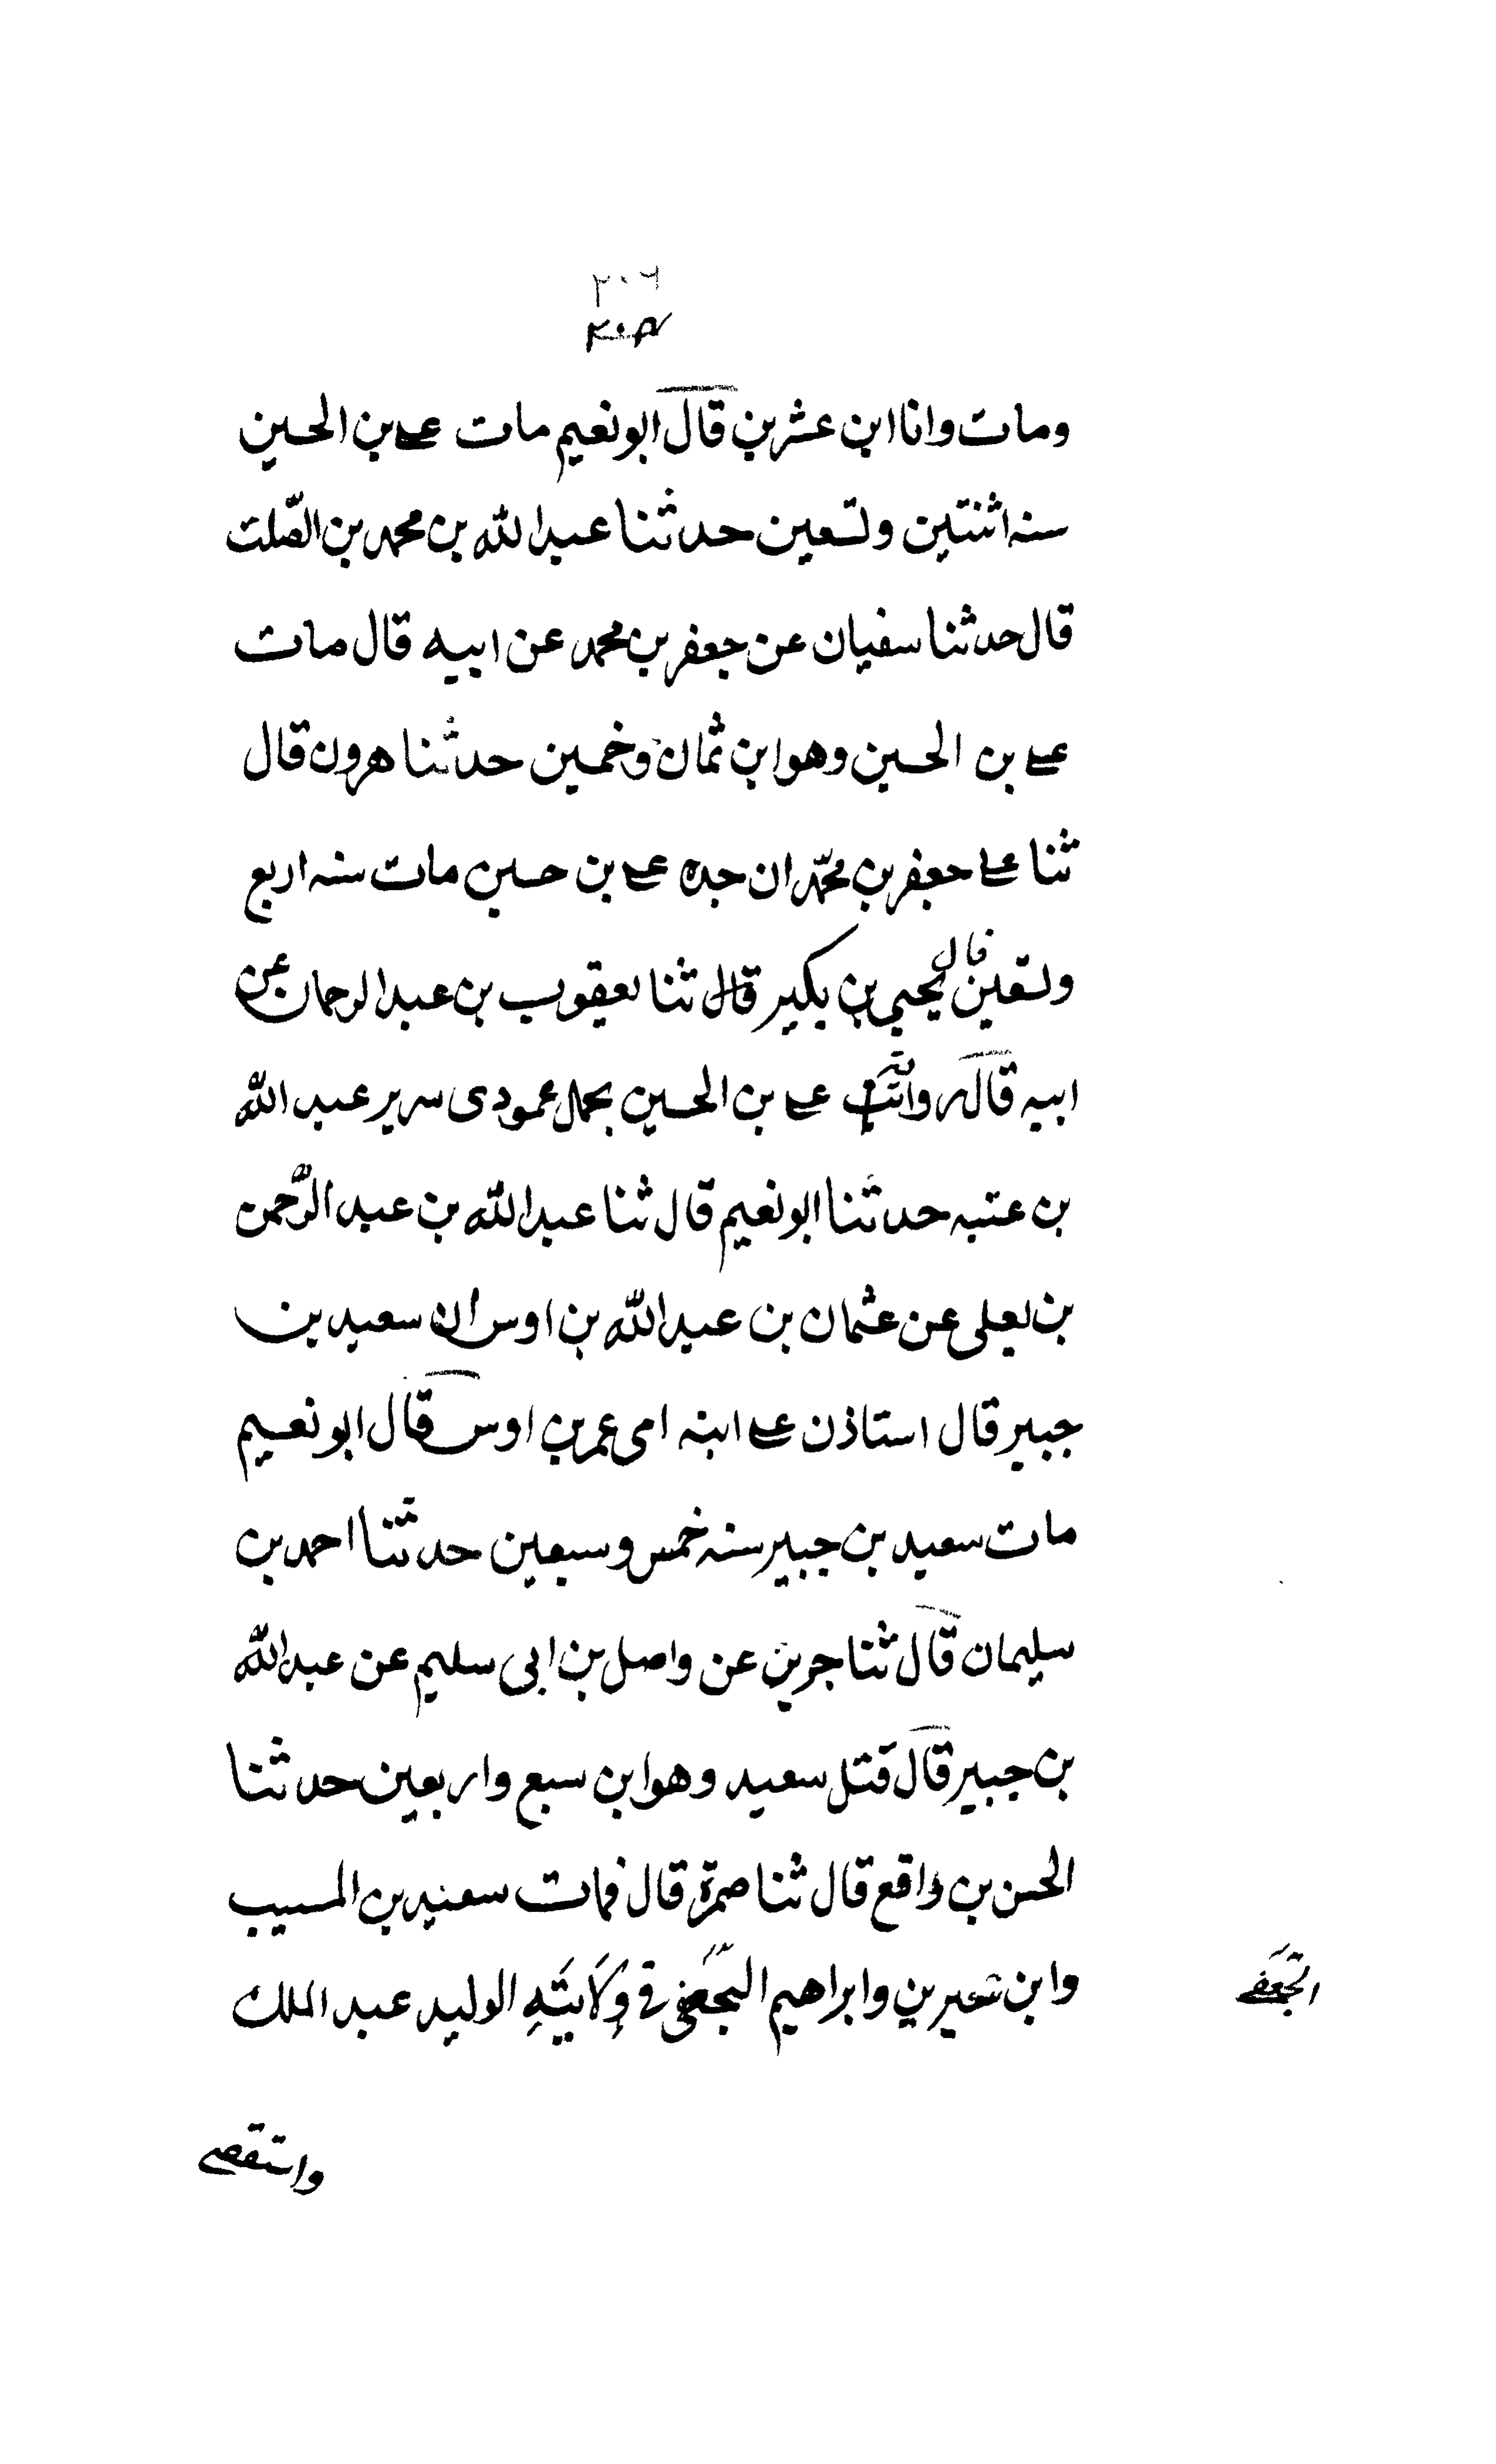 ٢٠٦
ومات وانا ابن عشرين قال ابو نعيم مات علے بن الحسين
سنه اثنتين وتسعين حدثنا عبد الله بن محمد بن الصّلت
قال حدثنا سفيان عن جعفر بن محمد عن ابيه قال مات
علے بن الحسين وهو ابن ثمان وخمسين حدثنا هرون قال
ثنا علے جعفر بن محمّد ان جده علے بن حسين مات سنه اربع
وتسعين قال يحيى بن بكير قال ثنا يعقوب بن عبد الرحمان عن
ابيه قال علے بن الحسين يحمل عمودى سرير عبد الله
بن عتبه حدثنا ابو نعيم قال ثنا عبد الله بن عبد الرّحمن
بن يعلى عن عثمان بن عبد الله بن اوس ان سعيد بن
جبير قال استاذن علے ابنه امى عمر بن اوس قال ابو نعيم
مات سعيد بن جبير سنه خمس وسبعين حدثنا احمد بن
سليمان قال ثنا جرين عن واصل بن ابى سليم عن عبد الله
بن جبير قال قتل سعيد وهو ابن سبع واربعين حدثنا
الحسن بن واقع قال ثنا ضمرة قال فمات سعيد بن المسيب
وابن شيرين وابراهيم فى وِلَايَتِهِ الوليد عبد الملك
واستقصے